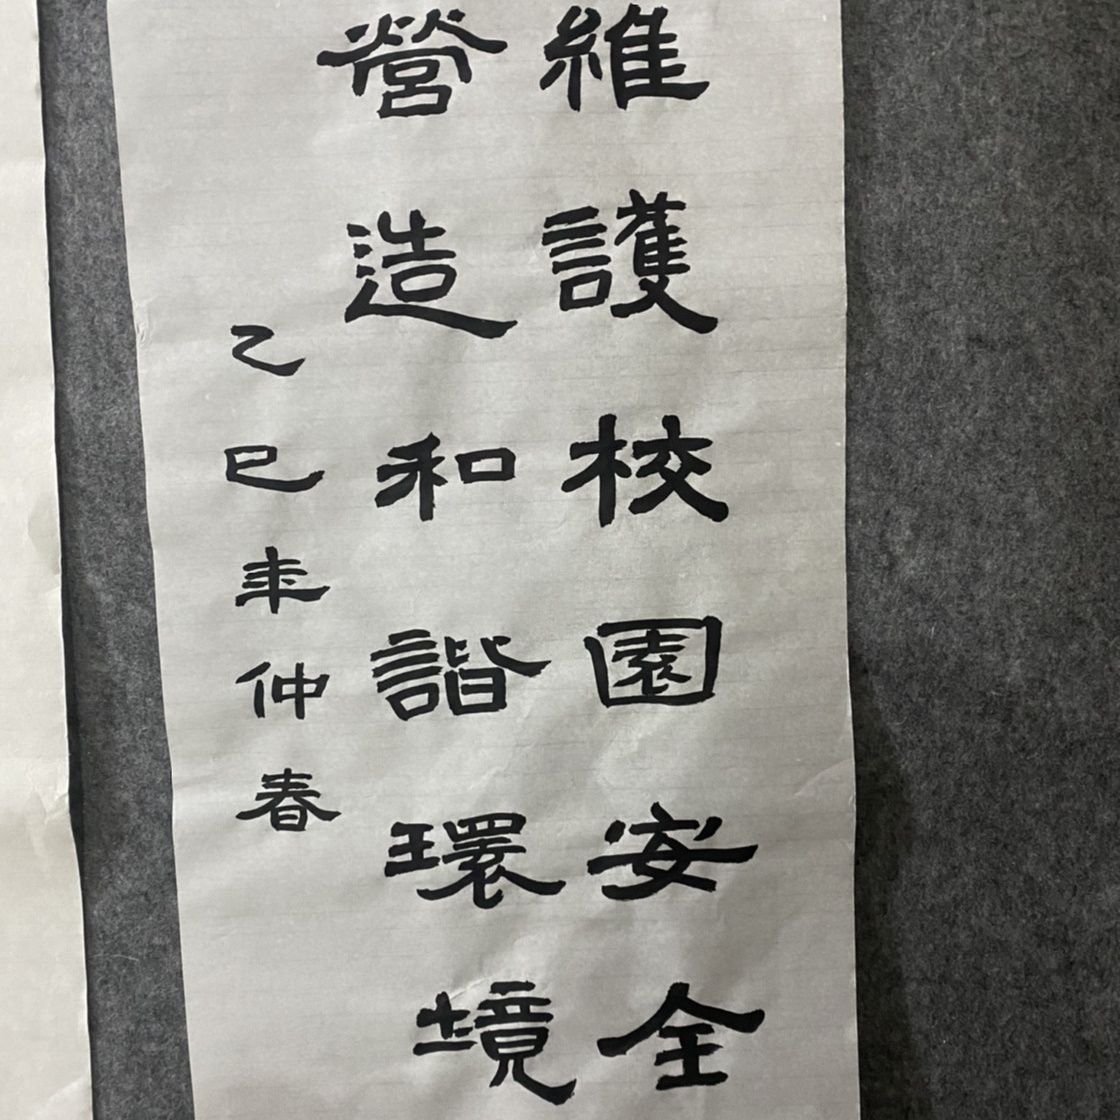 維護校園安全
營造和諧環境
乙巳年仲春